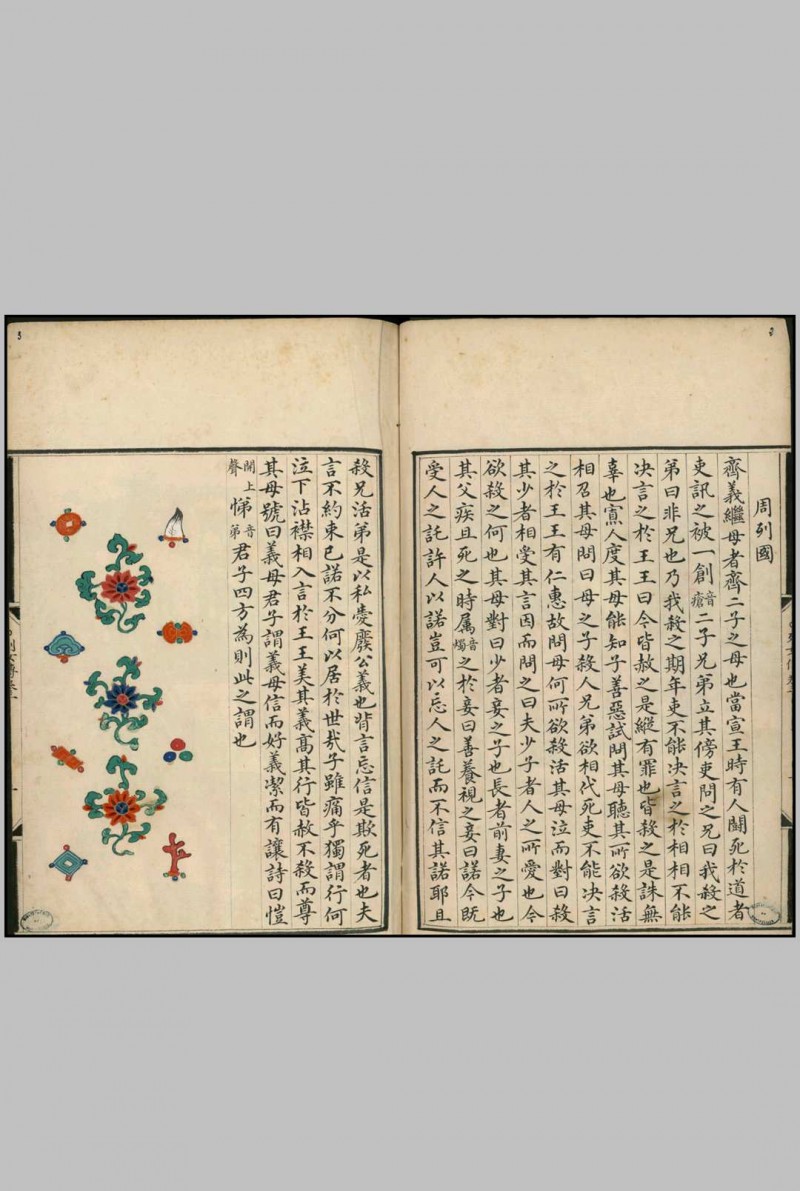 周列國
齊義繼母者齊二子之母也當宣王時有人鬭死於道者
吏訊之被一創音瘡二子兄弟立其傍吏問之兄曰我殺之
弟曰非兄也乃我殺之期年吏不能决言之於相相不能
决言之於王王曰今皆赦之是縱有罪也皆殺之是誅無
辜也寡人度其母能知子善惡試問其母聽其所欲殺活
相召其母問曰母之子殺人兄弟欲相代死吏不能决言
之於王王有仁惠故問母何所欲殺活其母泣而對曰殺
其少者相受其言因而問之曰夫少子者人之所愛也今
欲殺之何也其母對曰少者妾之子也長者前妻之子也
其父疾且死之時属音燭之於妾曰善養視之妾曰諾今既
受人之託許人以諾豈可以忘人之託而不信其諾耶且
殺兄活弟是以私愛廢公義也背言忘信是欺死者也夫
言不約束已諾不分何以居於世哉子雖痛乎獨謂行何
泣下沾襟相入言於王王美其義高其行皆赦不殺而尊
其母號曰義母君子謂義母信而好義潔而有讓詩曰愷
開上聲悌音弟君子四方為則此之謂也
3